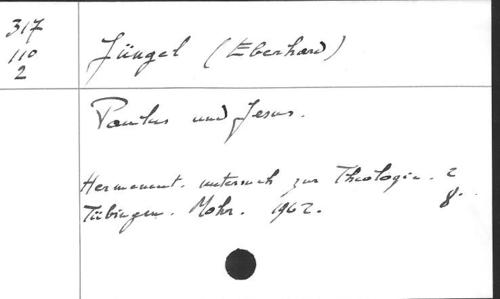 317
110
2
Jüngel (Eberhard)
Paulus und Jesus.
Hermeneut. untersuch zur Theologie. 2
Tübingen. Mohr. 1962. 8.